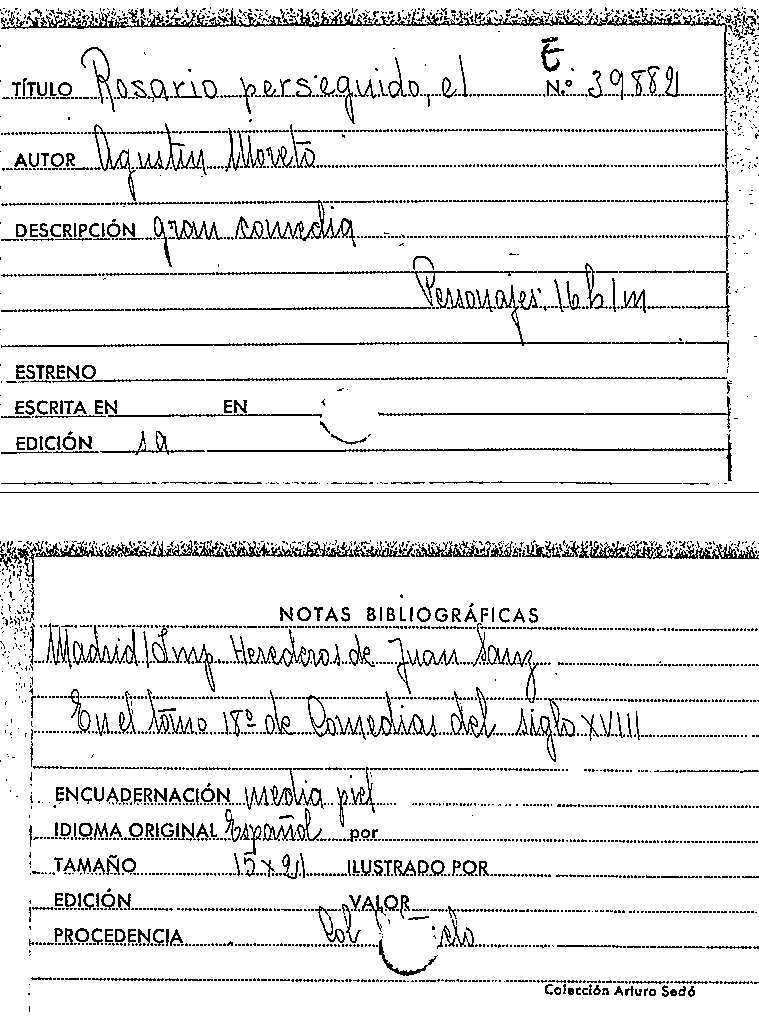 E
TÍTULO Rosario perseguido, el N.º 39882
AUTOR Agustín Moreto
DESCRIPCIÓN gran comedia
Personajes: 16 h 1 m
ESTRENO
ESCRITA EN EN
EDICIÓN s.a
NOTAS BIBLIOGRÁFICAS
Madrid / Imp. Herederos de Juan Sanz
En el tomo 18º de Comedias del siglo XVIII
ENCUADERNACIÓN media piel
IDIOMA ORIGINAL Español por
TAMAÑO 15 x 21 ILUSTRADO POR
EDICIÓN VALOR
PROCEDENCIA Col
Colección Arturo Sedó